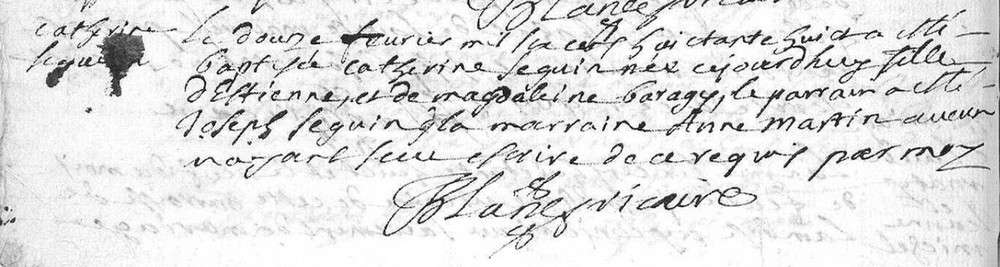 Blanes vicaire
catherine
seguin
le douze feurier mil six cens huictante huict a esté
baptisée catherine seguin nee ce jourdhuy fille
d'Estienne, et de magdaleine baragy, le parrain a esté
Joseph seguin & la marraine Anne martin aucun
nayant sceu escrire de ce requis par moy
Blanes vicaire